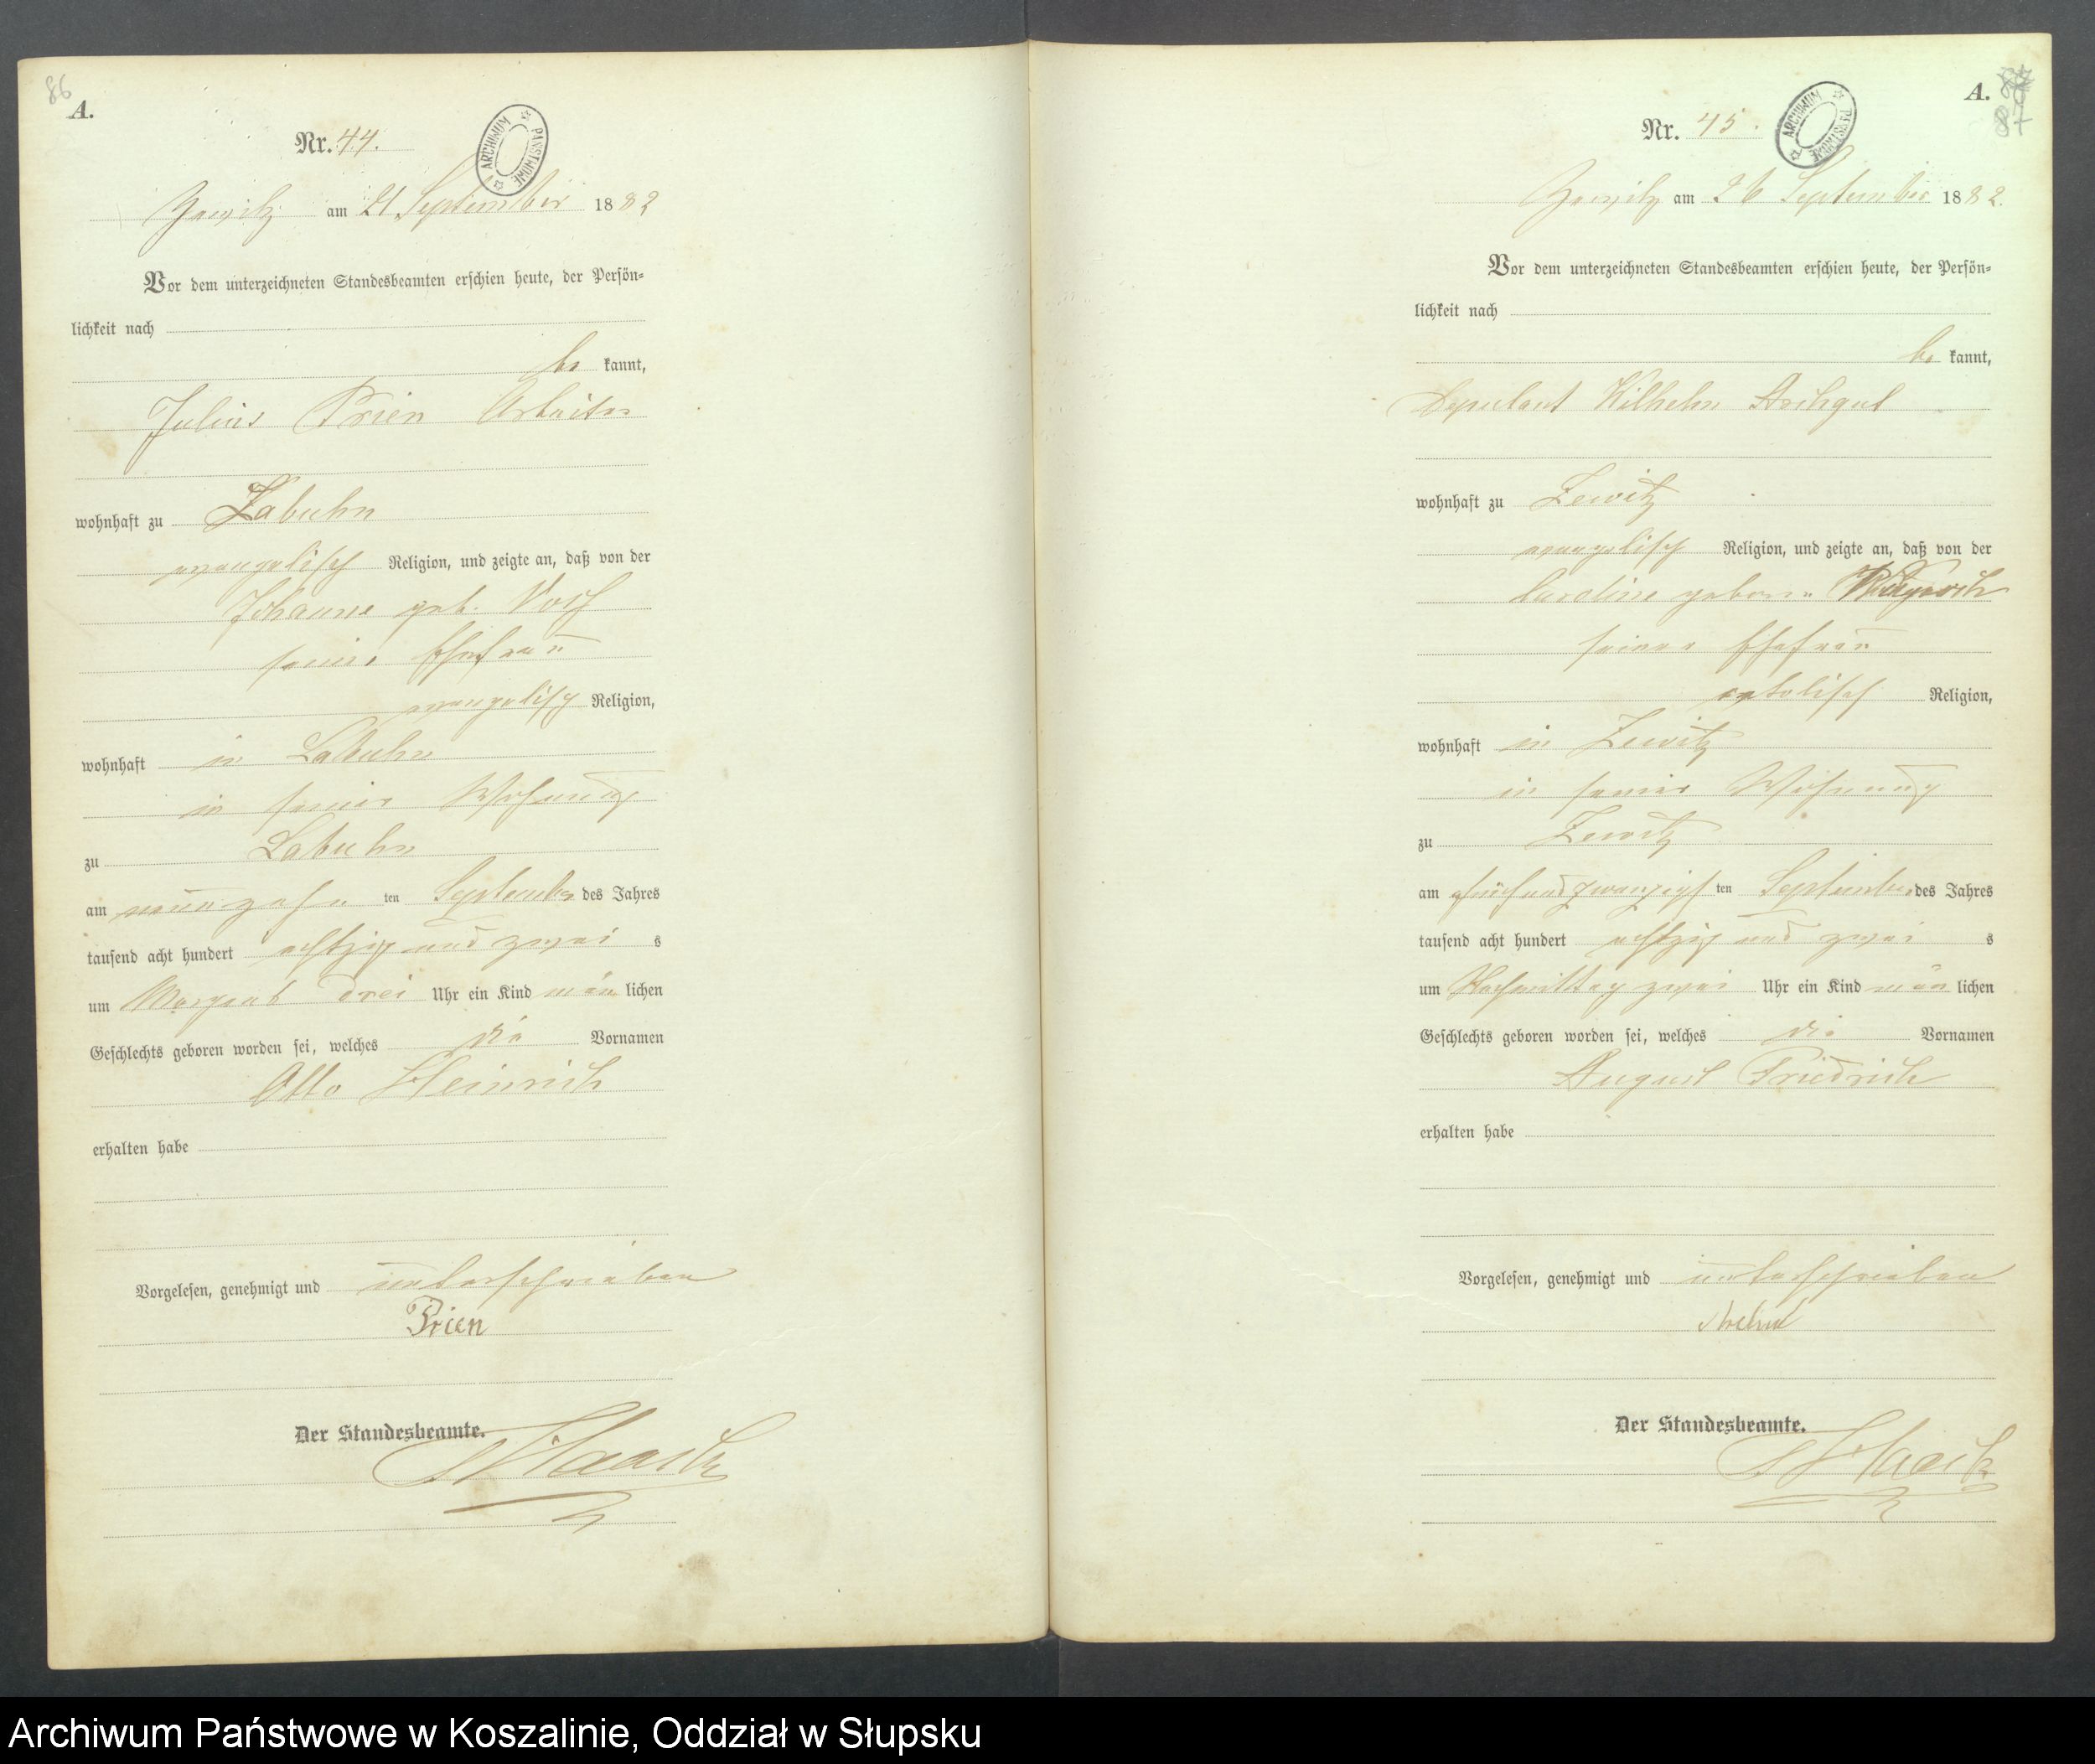 86
A.
Nr. 44.
ARCHIWUM PAŃSTWOWE
am 21 September 1882
Vor dem unterzeichneten Standesbeamten erschien heute, der Persön=
lichkeit nach
be kannt,
Julius Prien Arbeiter
wohnhaft zu Labuhn
evangelisch Religion, und zeigte an, daß von der
Johanne geb.
seine Ehefrau
evangelisch Religion,
wohnhaft in Labuhn
in seiner Wohnung
zu Labuhn
am neunzehn ten September des Jahres
tausend acht hundert achtzig und zwei s
um Morgens drei Uhr ein Kind män lichen
Geschlechts geboren worden sei, welches die Vornamen
Otto Heinrich
erhalten habe
Vorgelesen, genehmigt und unterschrieben
Prien
Der Standesbeamte.
A.
87
Nr. 45.
ARCHIWUM PAŃSTWOWE
am 26 September 1882.
Vor dem unterzeichneten Standesbeamten erschien heute, der Persön=
lichkeit nach
be kannt,
Deputant Wilhelm
wohnhaft zu Zewitz
evangelisch Religion, und zeigte an, daß von der
Caroline geboren
seiner Ehefrau
Religion,
wohnhaft in Zewitz
in seiner Wohnung
zu Zewitz
am fünfundzwanzigst ten September des Jahres
tausend acht hundert achtzig und zwei s
um Nachmittag zwei Uhr ein Kind män lichen
Geschlechts geboren worden sei, welches die Vornamen
August Friedrich
erhalten habe
Vorgelesen, genehmigt und unterschrieben
Der Standesbeamte.
Archiwum Państwowe w Koszalinie, Oddział w Słupsku